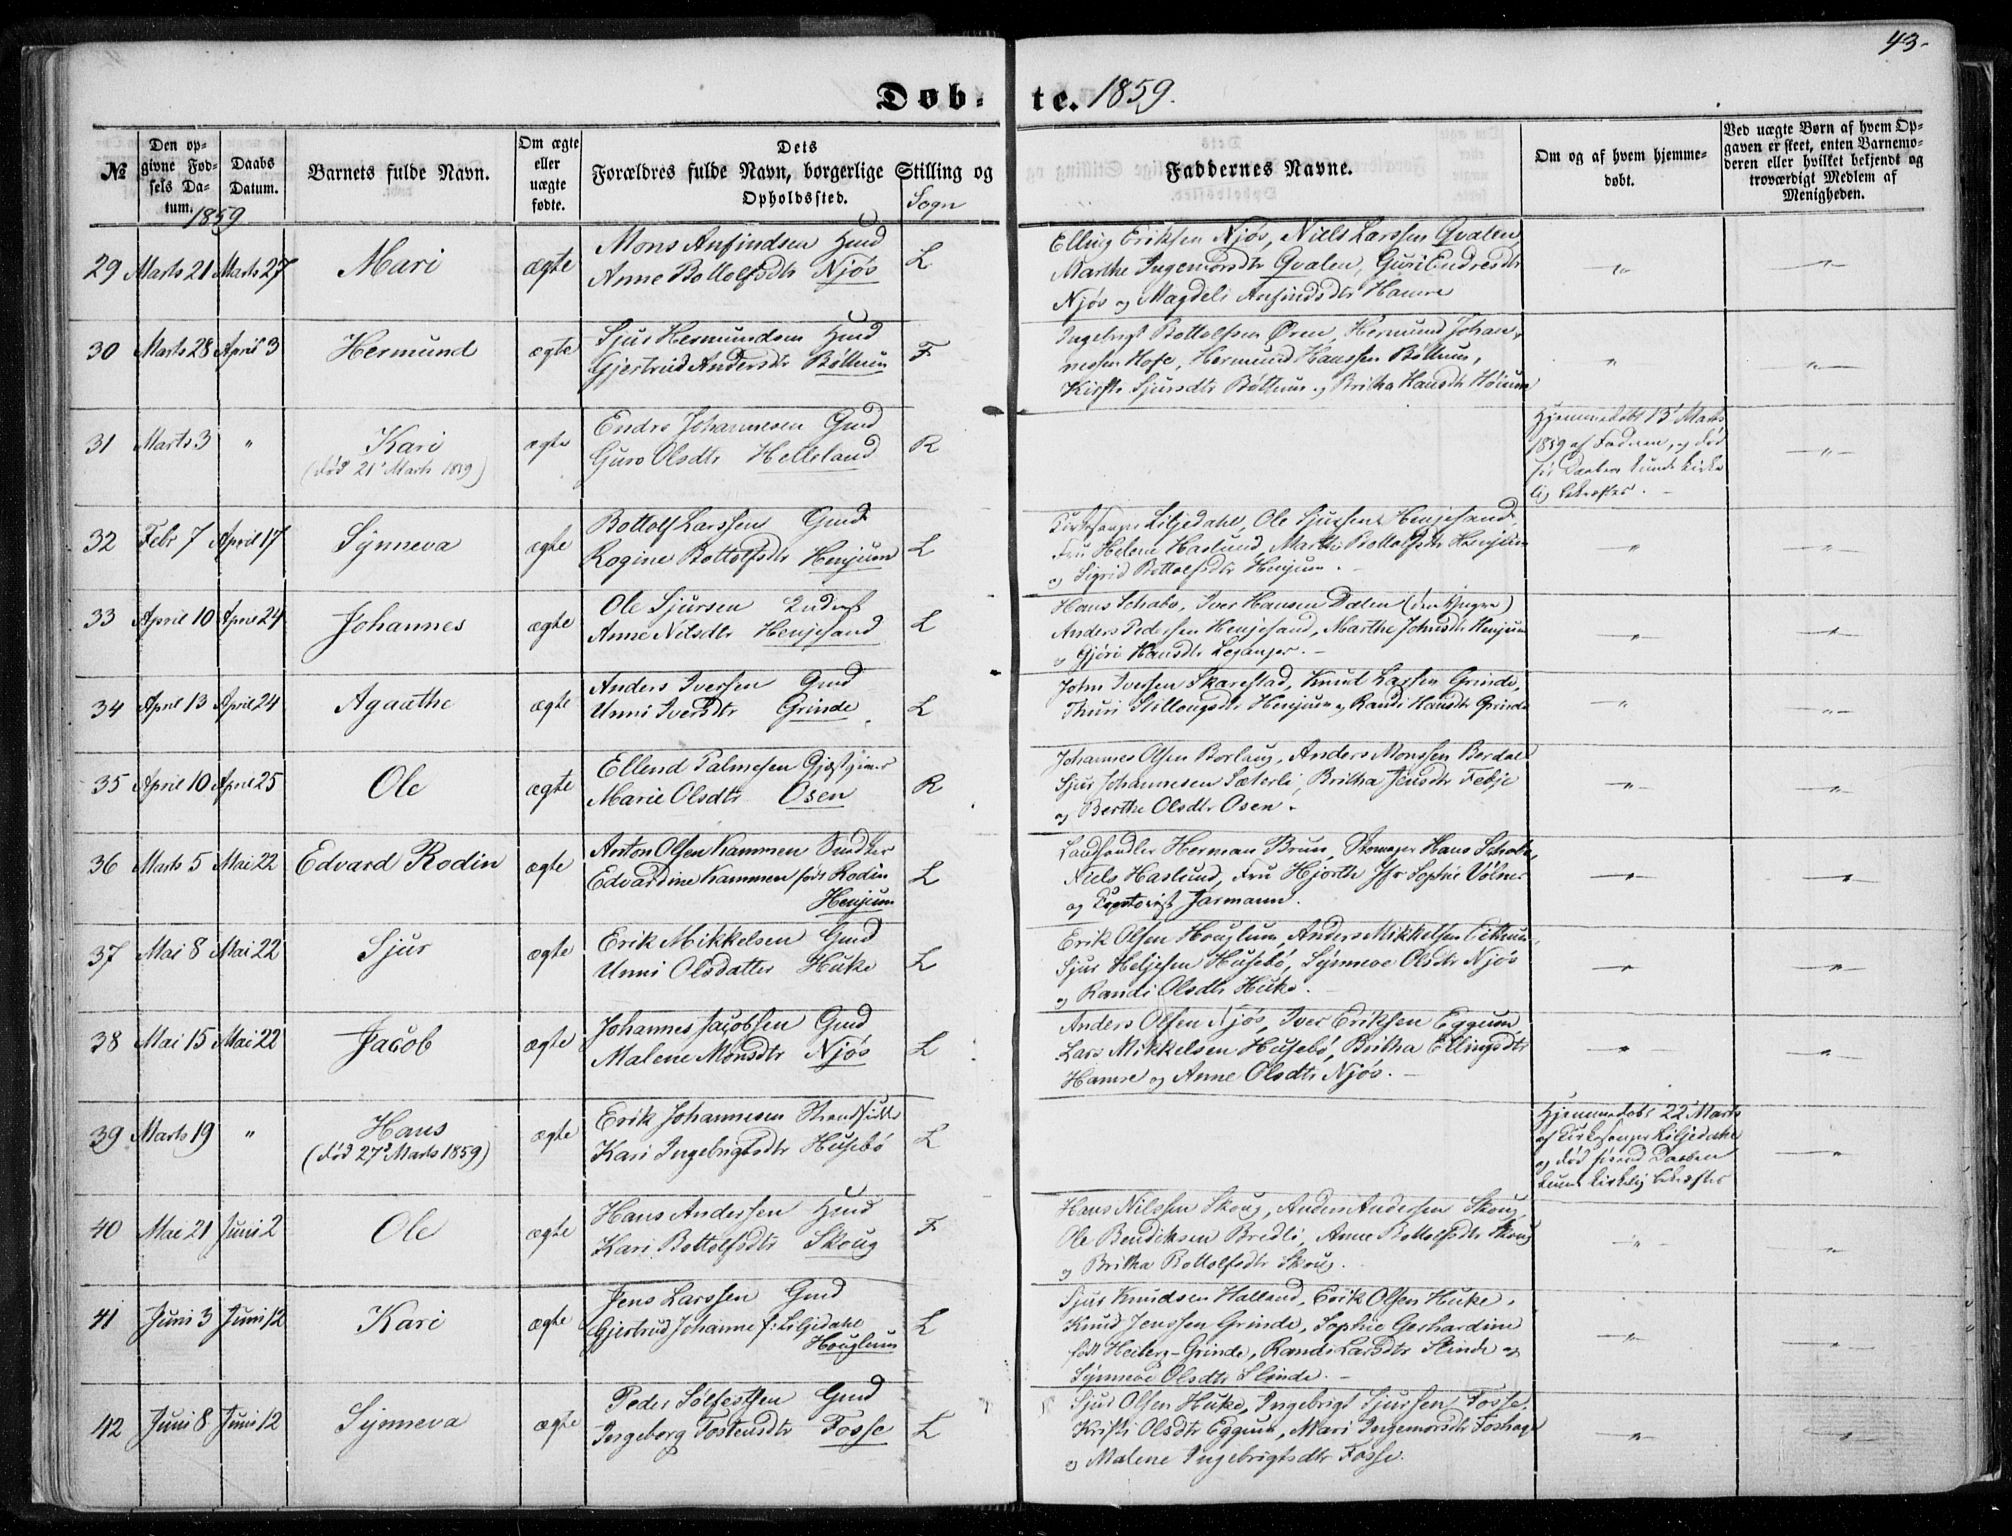 43-
Døb- te. 1859.
№
Den op-
givne Fød-
sels Da-
tum.
1859
Daabs
Datum.
Barnets fulde Navn.
Om ægte
eller
uægte
fødte.
Dets
Forældres fulde Navn, borgerlige Stilling og
Opholdssted.
Sogn
Faddernes Navne.
Om og af hvem hjemme-
døbt.
Ved uægte Børn af hvem Op-
gaven er skeet, enten Barnemo-
deren eller hvilket bekjendt og
troværdigt Medlem af
Menigheden.
29 Marts 21 Marts 27 Mari ægte
Mons Anfindsen Hmd
Anne Bottolfsdtr Njøs L
Elling Eriksen Njøs, Niels Larssen Qvalen,
Marthe Ingemorsdtr Qvalen, Guri Endresdtr
Njøs og Magdeli Anfindsdtr Hamre
30 Marts 28 April 3 Hermund ægte
Sjur Hermundsen Hmd
Gjertrud Andersdtr Bøttum F
Ingebrigt Bottolfsen Øren, Hermund Johan-
nessen Hofe, Hermund Hanssen Bøttum,
Kirsti Sjursdtr Bøttum og Britha Hansdtr Høium
31 Marts 3 " Kari ægte
(død 21 Marts 1859)
Endre Johannesen Gmd
Guro Olsdtr Helleland R
Hjemmedøbt 13 Marts
1859 af Faderen, og død
før Daaben kunde kirke
lig bekræftes. -
32 Febr 7 April 17 Synneva ægte
Bottolf Larssen Gmd
Ragine Bottolfsdtr Henjum L
Kirkesanger Liljedahl, Ole Sjursen Henjesand,
Fru Helene Haslund, Marthe Bottolfsdtr Henjum
og Sigrid Bottolfsdtr Henjum. -
33 April 10 April 24 Johannes ægte
Ole Sjursen Inderst
Anne Nilsdtr Henjesand L
Hans Schabo, Iver Hansen Dalen (den Yngre)
Anders Pedersen Henjesand, Marthe Johnsdtr Henjum
og Gjøri Hansdtr Leganger. -
34 April 13 April 24 Agaathe ægte
Anders Iversen Gmd
Unni Iversdtr Grinde L
John Iversen Skarestad, Knud Larsen Grinde,
Thuri Stillougsdtr Henjum og Randi Hansdtr Grinde
35 April 10 April 25 Ole ægte
Ellend Palmesen Gjæstgiver
Marie Olsdtr Osen R
Johannes Olsen Borlaug, Anders Monssen Berdal
Sjur Johannesen Sæterli, Britha Jensdtr Febje
og Berthe Olsdtr Osen.
36 Marts 5 Mai 22 Edvard Rodin ægte
Anton Olsen Kammen Snedker
Edvardine Kammen født Rodin
Henjum L
Landhandler Herman Brun, Skomager Hans Schabo,
Niels Haslund, Fru Hjorth Jfr Sophie Vølner
og Jarmann.
37 Mai 8 Mai 22 Sjur ægte
Erik Mikkelsen Gmd
Unni Olsdatter Huke L
Erik Olsen Houglum, Anders Mikkelsen
Sjur Heljesen Husebø, Synneve Olsdtr Njøs
og Randi Olsdtr Huke. -
38 Mai 15 Mai 22 Jacob ægte
Johannes Jacobsen Gmd
Malene Monsdtr Njøs L
Anders Olsen Njøs, Iver Eriksen Eggum,
Lars Mikkelsen Husebø, Britha Ellingsdtr
Hamre og Anne Olsdtr Njøs. -
39 Marts 19 " Hans ægte
(død 27de Marts 1859)
Erik Johannesen Strandsidder
Kari Ingebrigtsdtr Husebø L
Hjemmedøbt 22 Marts
af Kirkesanger Liljedahl
og død førend Daaben
kunde kirkelig bekræftes
40 Mai 21 Juni 2 Ole ægte
Hans Andersen Hmd
Kari Bottolfsdtr Skoug F
Hans Nilssen Skoug, Anders Andersen Skoug,
Ole Bendiksen Bredli, Anne Bottolfsdtr Skoug
og Britha Bottolfsdtr Skoug.
41 Juni 3 Juni 12 Kari ægte
Jens Larssen Gmd
Gjertrud Johanne f: Liljedahl
Houglum L
Sjur Knudsen Halland, Erik Olsen Huke,
Knud Jenssen Grinde, Sophie Gerhardine
født Heiberg-Grinde, Randi Larsdtr Slinde og
Synneve Olsdtr Slinde. -
42 Juni 8 Juni 12 Synneva ægte
Peder Sølfestsen Gmd
Ingeborg Tostensdtr Fosse L
Sjur Olsen Huke, Ingebrigt Sjursen Fosse,
Kristi Olsdtr Eggum, Mari Ingemorsdtr Foshage
og Malene Ingebrigtsdtr Fosse.